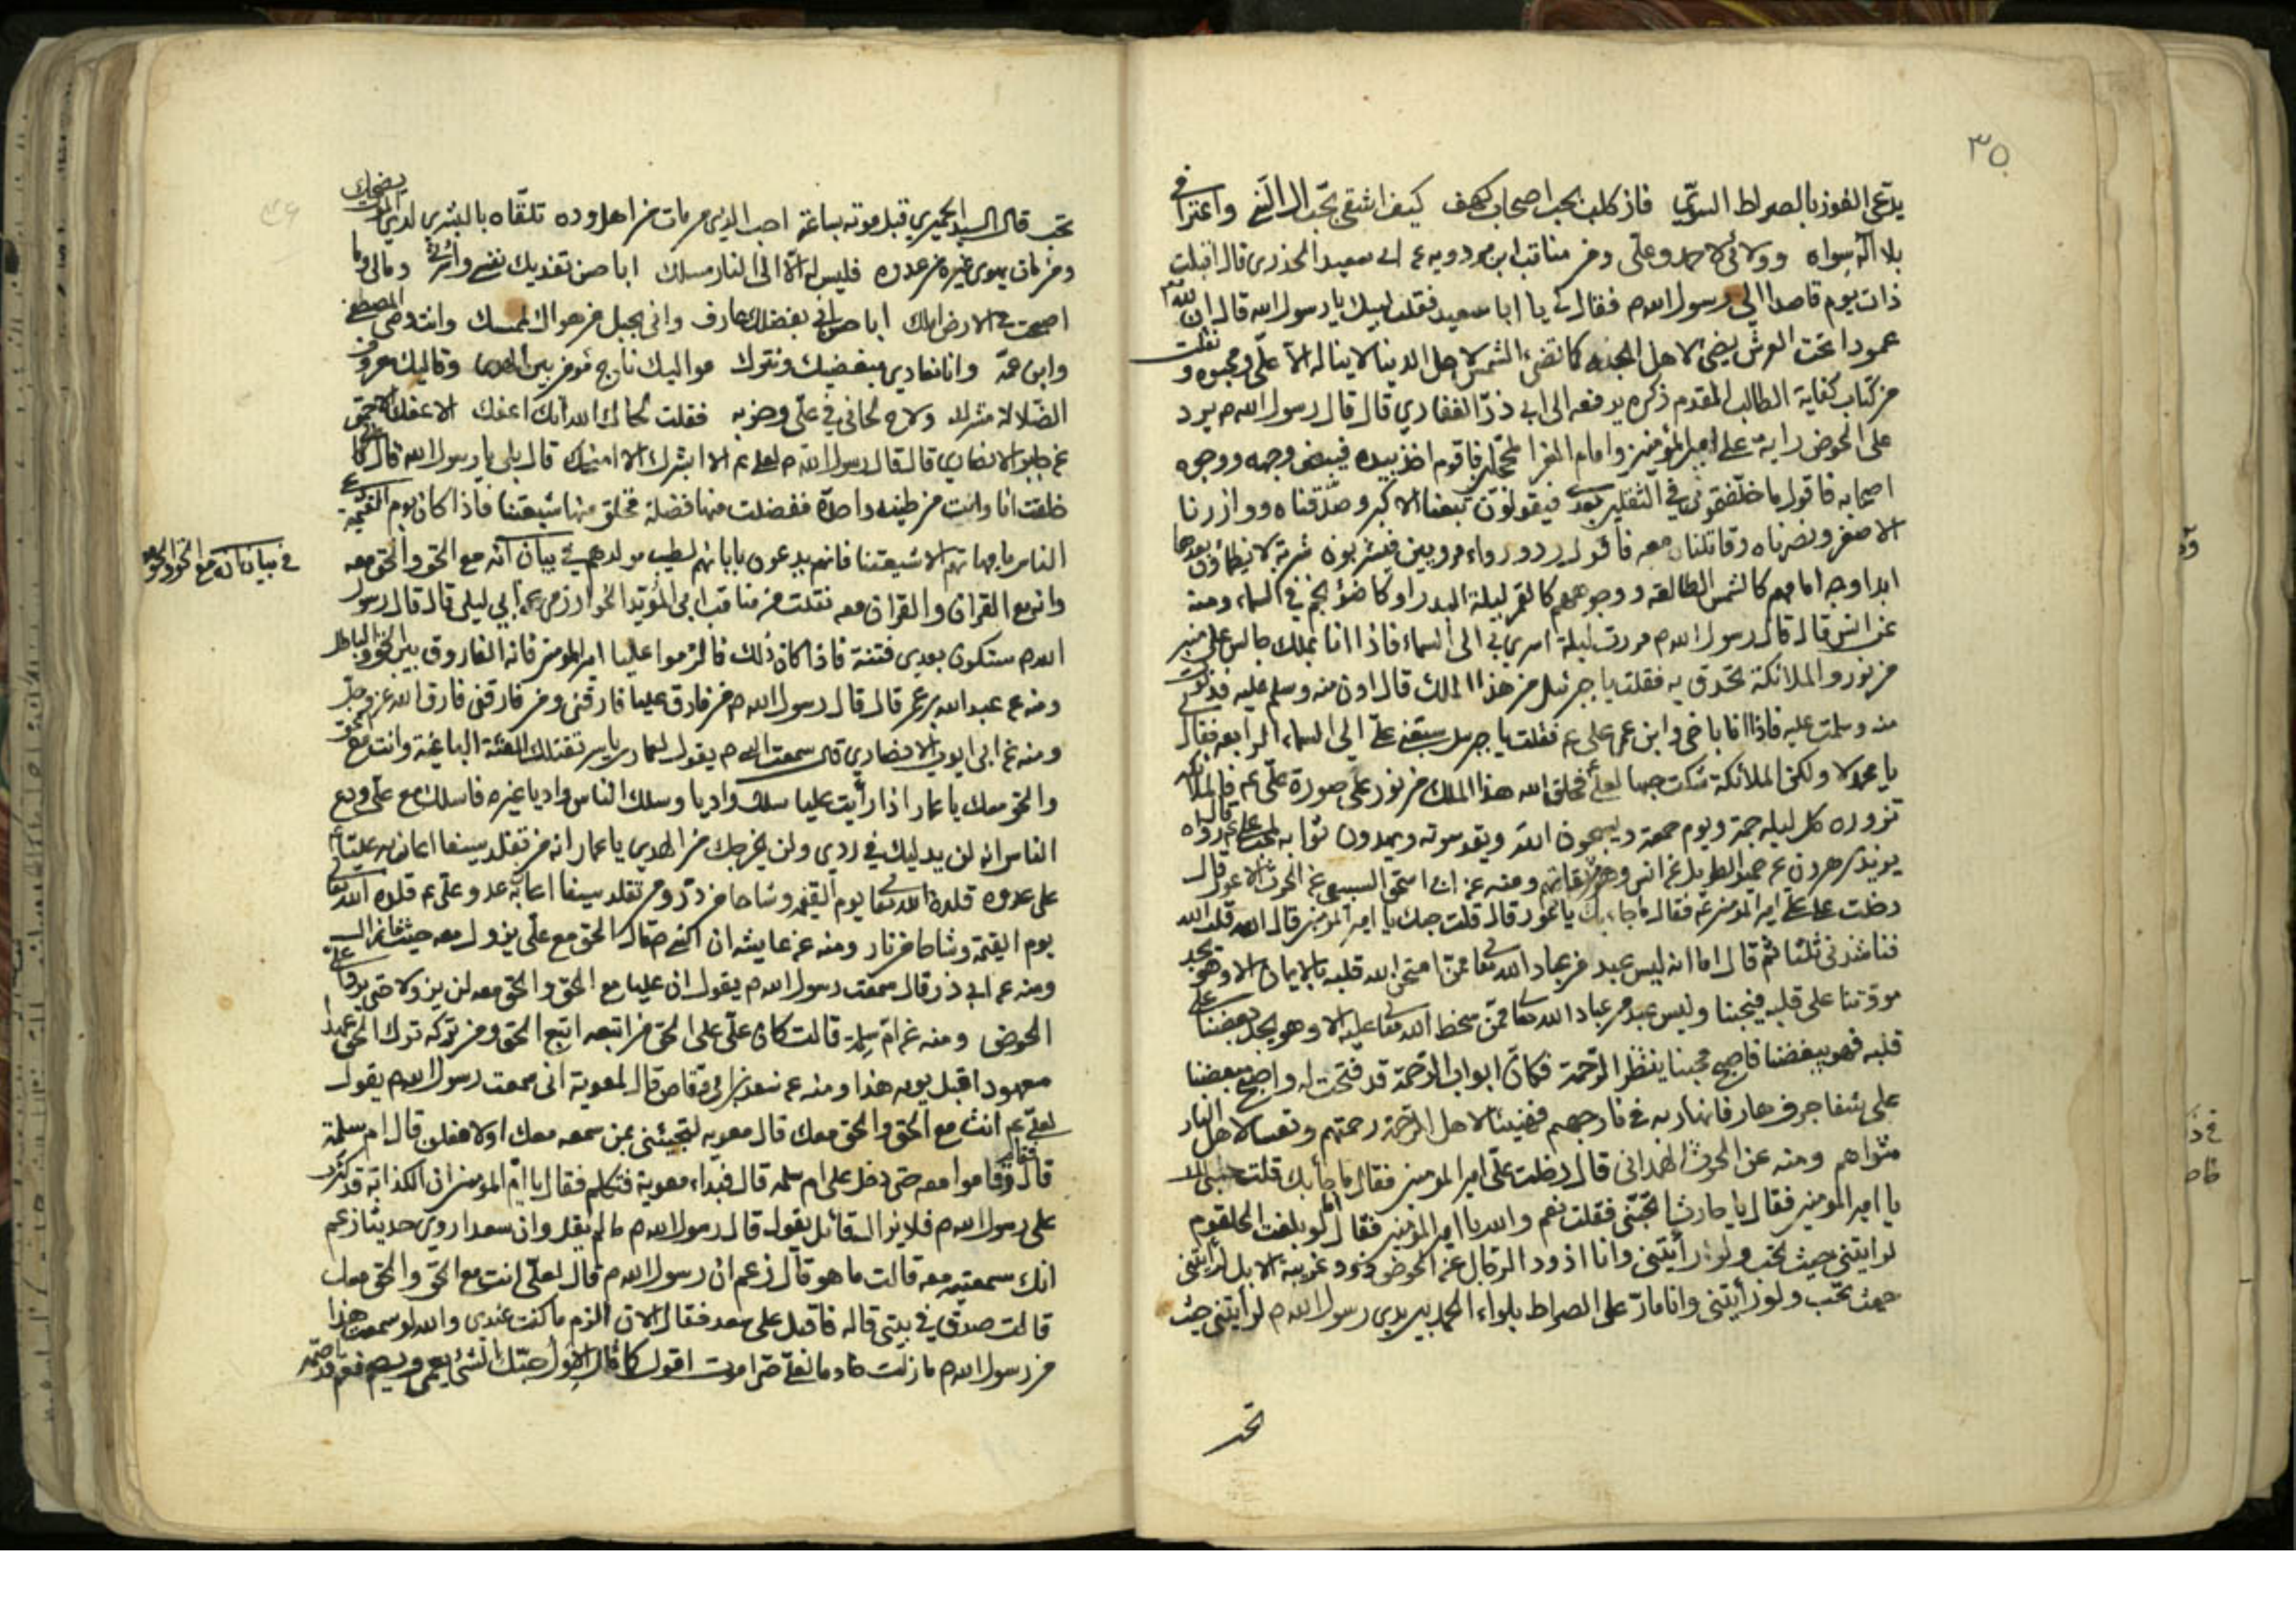 ٣٥
يدّعى الفوز بالصراط السوىّ فاز كلب بحب اصحاب كهف كيف اشقى بحب ال النبي واعتزا في
بلا اله سواه وولائى لاحمد وعلى ومن مناقب ابن مردويه عن ابى سعيد الخدرى قال اقبلت
ذات يوم قاصدا الى رسول الله ص فقال لى يا ابا سعيد فقلت لبيك يا رسول الله قال ان لله
عمودا تحت العرش يضئ لاهل الجنه كما تضئ الشمس لاهل الدنيا لا يناله الا على ومحبوه ونقلت
من كتاب كفاية الطالب المقدم ذكره يرفعه الى ابى ذرّ الغفاري قال قال رسول الله ص يرد
على الحوض راية على امير المؤمنين وامام الغر المحجلين فاقوم اخذ بيده فيبيض وجهه ووجوه
اصحابه فاقول ما خلفتمونى فى الثقلين بعدى فيقولون تبعنا الاكبر وصدّقناه ووازرنا
الاصغر ونصرناه وقاتلنا معه فاقول ردوا رواء مرويين فيشربون شربة لا يظمأون بعدها
ابدا وجه امامهم كالشمس الطالعه ووجوههم كالقمر ليلة البدر او كاضوء نجم فى السماء ومنه
عن انس قال قال رسول الله ص مررت ليلة اسرى بى الى السماء فاذا انا بملك جالس على منبر
من نور والملائكة تحدق به فقلت يا جبرئيل من هذا الملك قال ادن منه وسلم عليه فدنوت
منه وسلمت عليه فاذا انا باخى وابن عمى على ع فقلت يا جبرئيل سبقنى على الى السماء الرابعه فقال لى
يا محمد لا ولكن الملائكة شكت حبها لعلى فخلق الله هذا الملك من نور على صورة على ع فالملائكه
تزوره كل ليله جمعة ويوم جمعة ويسبحون الله ويقدسونه ويهدون ثوابه لمحب على ع قال رواه
يزيد بن هرون عن حميد الطويل عن انس وهو من ثقاتهم ومنه عن ابى اسحق السبيعى عن الحرث الاعور قال
دخلت على على امير المؤمنين ع فقال ما جاء بك يا اعور قال قلت حبك يا امير المؤمنين قال الله قلت الله
فناشدنى ثلثا ثم قال اما انه ليس عبد من عباد الله تعالى ممن امتحن الله قلبه بالايمان الا وهو يجد
مودّتنا على قلبه فيحبنا وليس عبد من عباد الله تعالى ممن سخط الله تعالى عليه الا وهو يجد بغضنا على
قلبه فهو يبغضنا فاصبح محبنا ينتظر الرّحمة فكان ابواب الرّحمة قد فتحت له واصبح مبغضنا
على شفا جرف هار فانهار به فى نار جهنم فهنيئا لاهل الرّحمة رحمتهم وتعسا لاهل النار
مثواهم ومنه عن الحرث الهمدانى قال دخلت على امير المؤمنين فقال ما جاء بك قلت حبى لك
يا امير المؤمنين فقال يا حارث اتحبنى فقلت نعم والله يا امير المؤمنين فقال اما لو بلغت الحلقوم
لرايتنى حيث تحب ولو رأيتنى وانا اذود الرّجال عن الحوض ذود غريبة الابل لرأيتنى
حيث تحب ولو رأيتنى وانا مارّ على الصراط بلواء الحمد بين يدى رسول الله ص لرأيتنى حيث
تحب
تحب قال السيد الحميرى قبل موته بساعة احب الذى من مات من اهل وده تلقاه بالبشرى لدى الموت يضحك
ومن مات يهوى غيره من عدوه فليس له الا الى النار مسلك ابا حسن تفديك نفسى واسرتى ومالى وما
اصبحت فى الارض املك ابا حسن انى بفضلك عارف وانى بحبل من هواك لممسك وانت وصى المصطفى
وابن عمه وانا نعادى مبغضيك ونترك مواليك ناج مؤمن بين الهدى وقاليك معروف
الضلالة مشرك ولاح لحانى فى على وحزبه فقلت لحاك الله انك اعفك الاعفك الاحمق
عن جابر الانصارى قال قال رسول الله ص لعلى ع الا ابشرك الا امنحك قال بلى يا رسول الله قال
خلقت انا وانت من طينة واحدة ففضلت منها فضلة فخلق منها شيعتنا فاذا كان يوم القيمة دعى
الناس بامهاتهم الا شيعتنا فانهم يدعون بابائهم لطيب مولدهم فى بيان انه مع الحق والحق معه
وانه مع القران والقران معه نقلت من مناقب ابى المؤيد الخوارزمى عن ابى ليلى قال قال رسول
الله ص ستكون بعدى فتنة فاذا كان ذلك فالزموا عليا امير المؤمنين فانه الفاروق بين الحق والباطل
ومنه عن عبد الله بن عمر قال قال رسول الله ص من فارق عليا فارقنى ومن فارقنى فارق الله عز وجل
ومنه عن ابى ايوب الانصاري قال سمعت النبى ص يقول لعمار بن ياسر تقتلك الفئة الباغية وانت مع الحق
والحق معك يا عمار اذا رأيت عليا سلك واديا وسلك الناس واديا غيره فاسلك مع على ودع
الناس انه لن يدليك فى ردى ولن يخرجك من الهدى يا عمار انه من تقلد سيفا اعان به عليّا
على عدوه قلده الله تعالى يوم القيمه وشاحا من درّ ومن تقلد سيفا اعان به عدو على ع قلده الله تعالى
يوم القيمة وشاحا من نار ومنه عن عايشه ان النبى ص قال الحق مع على يزول معه حيث ما زال
ومنه عن ابى ذر قال سمعت رسول الله ص يقول ان عليا مع الحق والحق معه لن يزولا حتى يردا على
الحوض ومنه عن ام سلمة قالت كان علىّ على الحق من اتبعه اتبع الحق ومن تركه ترك الحق عهدا
معهودا قبل يومه هذا ومنه عن سعد بن ابى وقاص قال لمعوية انى سمعت رسول الله ص يقول
لعلى ع انت مع الحق والحق معك قال معويه لتجيئنى بمن سمعه معك او لافعلن قال ام سلمة
قال فقاموا معه حتى دخل على ام سلمه قال فبداء معوية فتكلم فقال يا ام المؤمنين ان الكذابة قد كثرت
على رسول الله ص فلا يزال قائل يقول قال رسول الله ص ما لم يقل وان سعدا روى حديثا زعم
انك سمعتيه معه قالت ما هو قال زعم ان رسول الله ص قال لعلى انت مع الحق والحق معك
قالت صدق فى بيتى قاله فاقبل على سعد فقال الان الزم ما كنت عندى والله لو سمعت هذا
من رسول الله ص ما زلت خادما لعلى حتى اموت اقول كما قال الاول حبّك الشئ يعمى ويصم
فى بيان انه مع الحق والحق معه